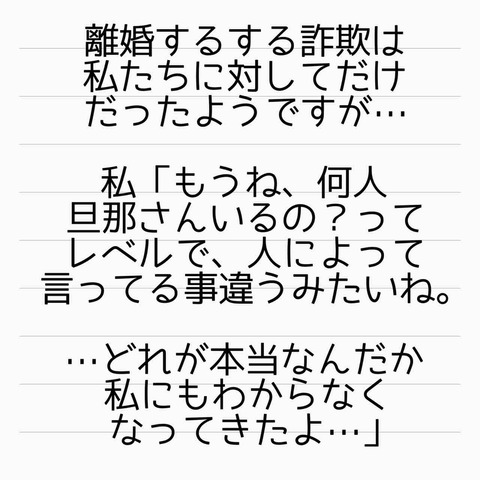 離婚するする詐欺は
私たちに対してだけ
だったようですが…
私「もうね、何人
旦那さんいるの？って
レベルで、人によって
言ってる事違うみたいね。
…どれが本当なんだか
私にもわからなく
なってきたよ…」